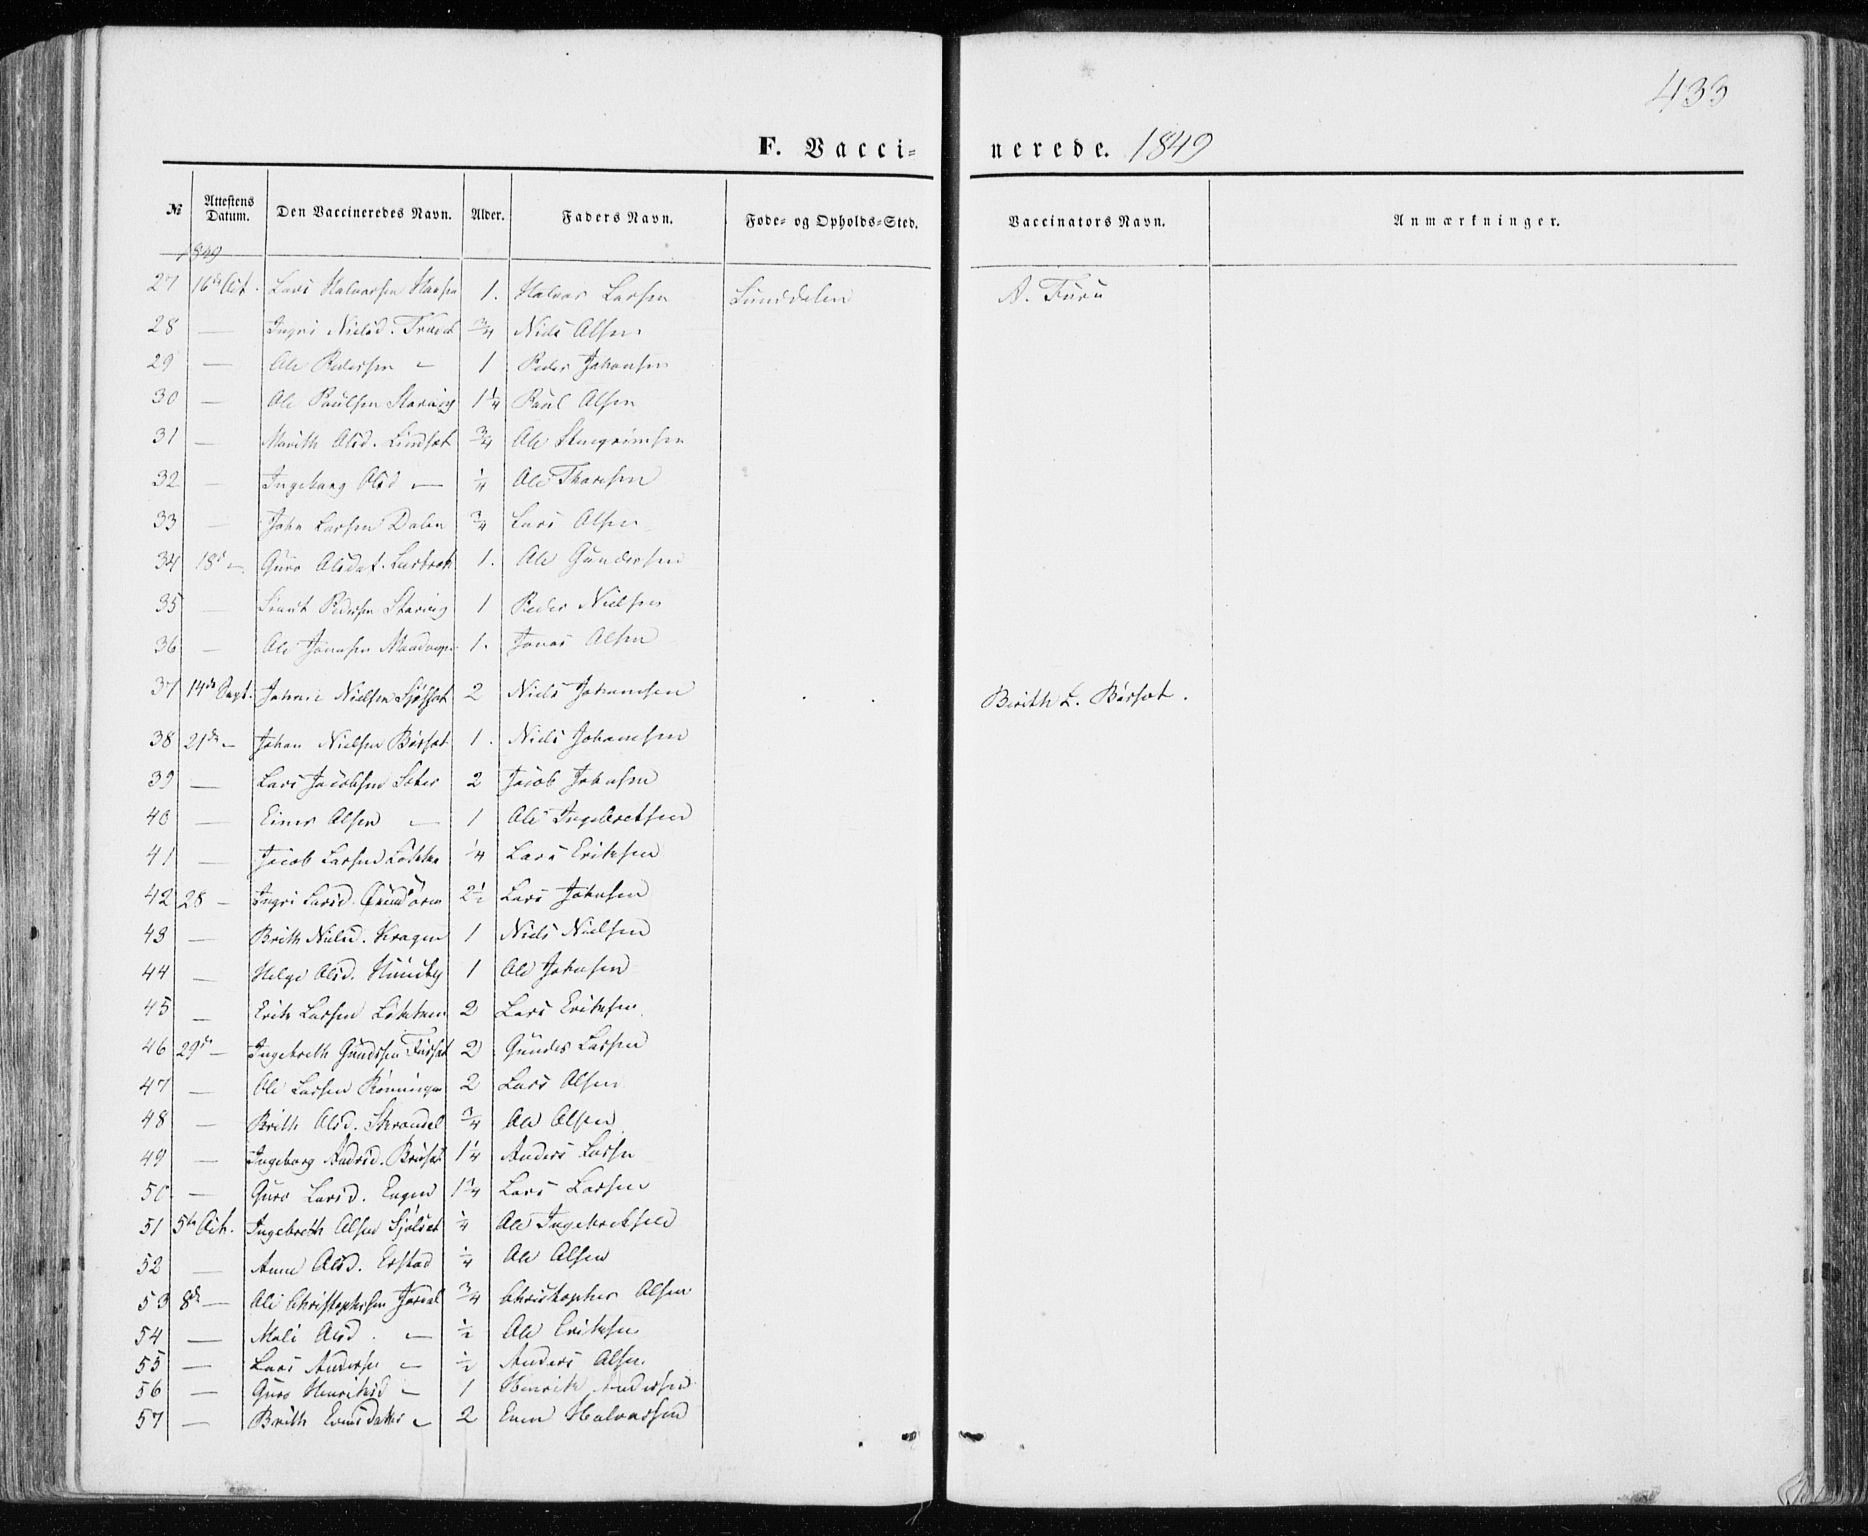 433
F. Vaccinerede. 1849
№ Attestens Datum. Den Vaccineredes Navn. Alder. Faders Navn. Føde- og Opholds-Sted. Vaccinators Navn. Anmærkninger.
1849
27 16de Oct. Lars Halvorsen Hansen 1. Halvor Larsen Lunddalen A. Furu
28 — Ingri Nielsd. 3/4 Niels Olsen
29 — Ole Pedersen — 1 Peder Johansen
30 — Ole Paulsen Staring 1 1/4 Paul Olsen
31 — Marith Olsd. Lindset 3/4 Ole Steengrimsen
32 — Ingeborg Olsd — 1/4 Ole Thoresen
33 — John Larsen Dalen 3/4 Lars Olsen
34 18d — Guro Olsdat. 1. Ole Gundersen
35 — Pedersen Staring 1 Peder Nielsen
36 — Ole Jonasen 1. Jonas Olsen
37 14de Sept. Nielsen 2 Niels Johansen Berith L. Børset.
38 21de — Johan Nielsen Børset 1. Niels Johansen
39 — Lars Jacobsen Sæter 2 Jacob Johnsen
40 — Einer Olsen — 1 Ole Ingebretsen
41 — Jacob Larsen Løkken 1/4 Lars Eriksen
42 28 — Ingri Larsd. 2 1/2 Lars Johnsen
43 — Brith Nielsd. Kragen 1 Niels Nielsen
44 — Helge Olsd. Huusby 1 Ole Johnsen
45 — Erik Larsen Løkken 2 Lars Eriksen
46 29de — Ingebreth Gundersen Furset 2 Gunder Larsen
47 — Ole Larsen Rønningen 2 Lars Olsen
48 — Brith Olsd. 3/4 Ole Olsen
49 — Ingeborg Andersd. 1 1/4 Anders Larsen
50 — Guro Larsd. Engen 1 3/4 Lars Larsen
51 5te Oct. Ingebreth Olsen Sjølset 1/4 Ole Ingebretsen
52 — Anne Olsd. Erstad 1/4 Ole Olsen
53 8de — Ole Christophersen 3/4 Christopher Olsen
54 — Mali Olsd. — 1/2 Ole Eriksen
55 — Lars Andersen — 1/2 Anders Olsen
56 — Guro Henriksd — 1 Henrik Andersen
57 — Brith Evensdatter — 2 Even Halvorsen